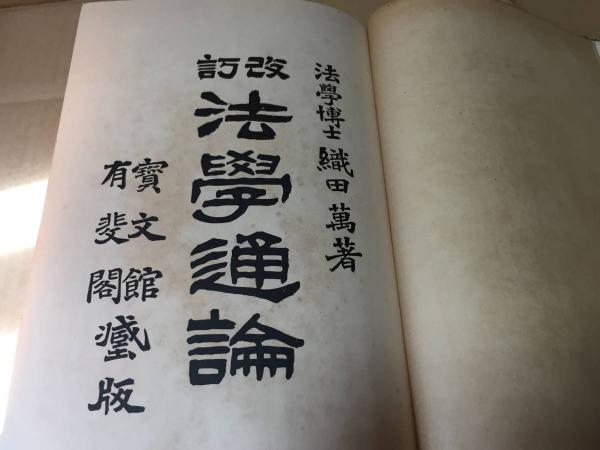 法學博士 織田萬著
改訂
法學通論
寶文館
有斐閣
藏版